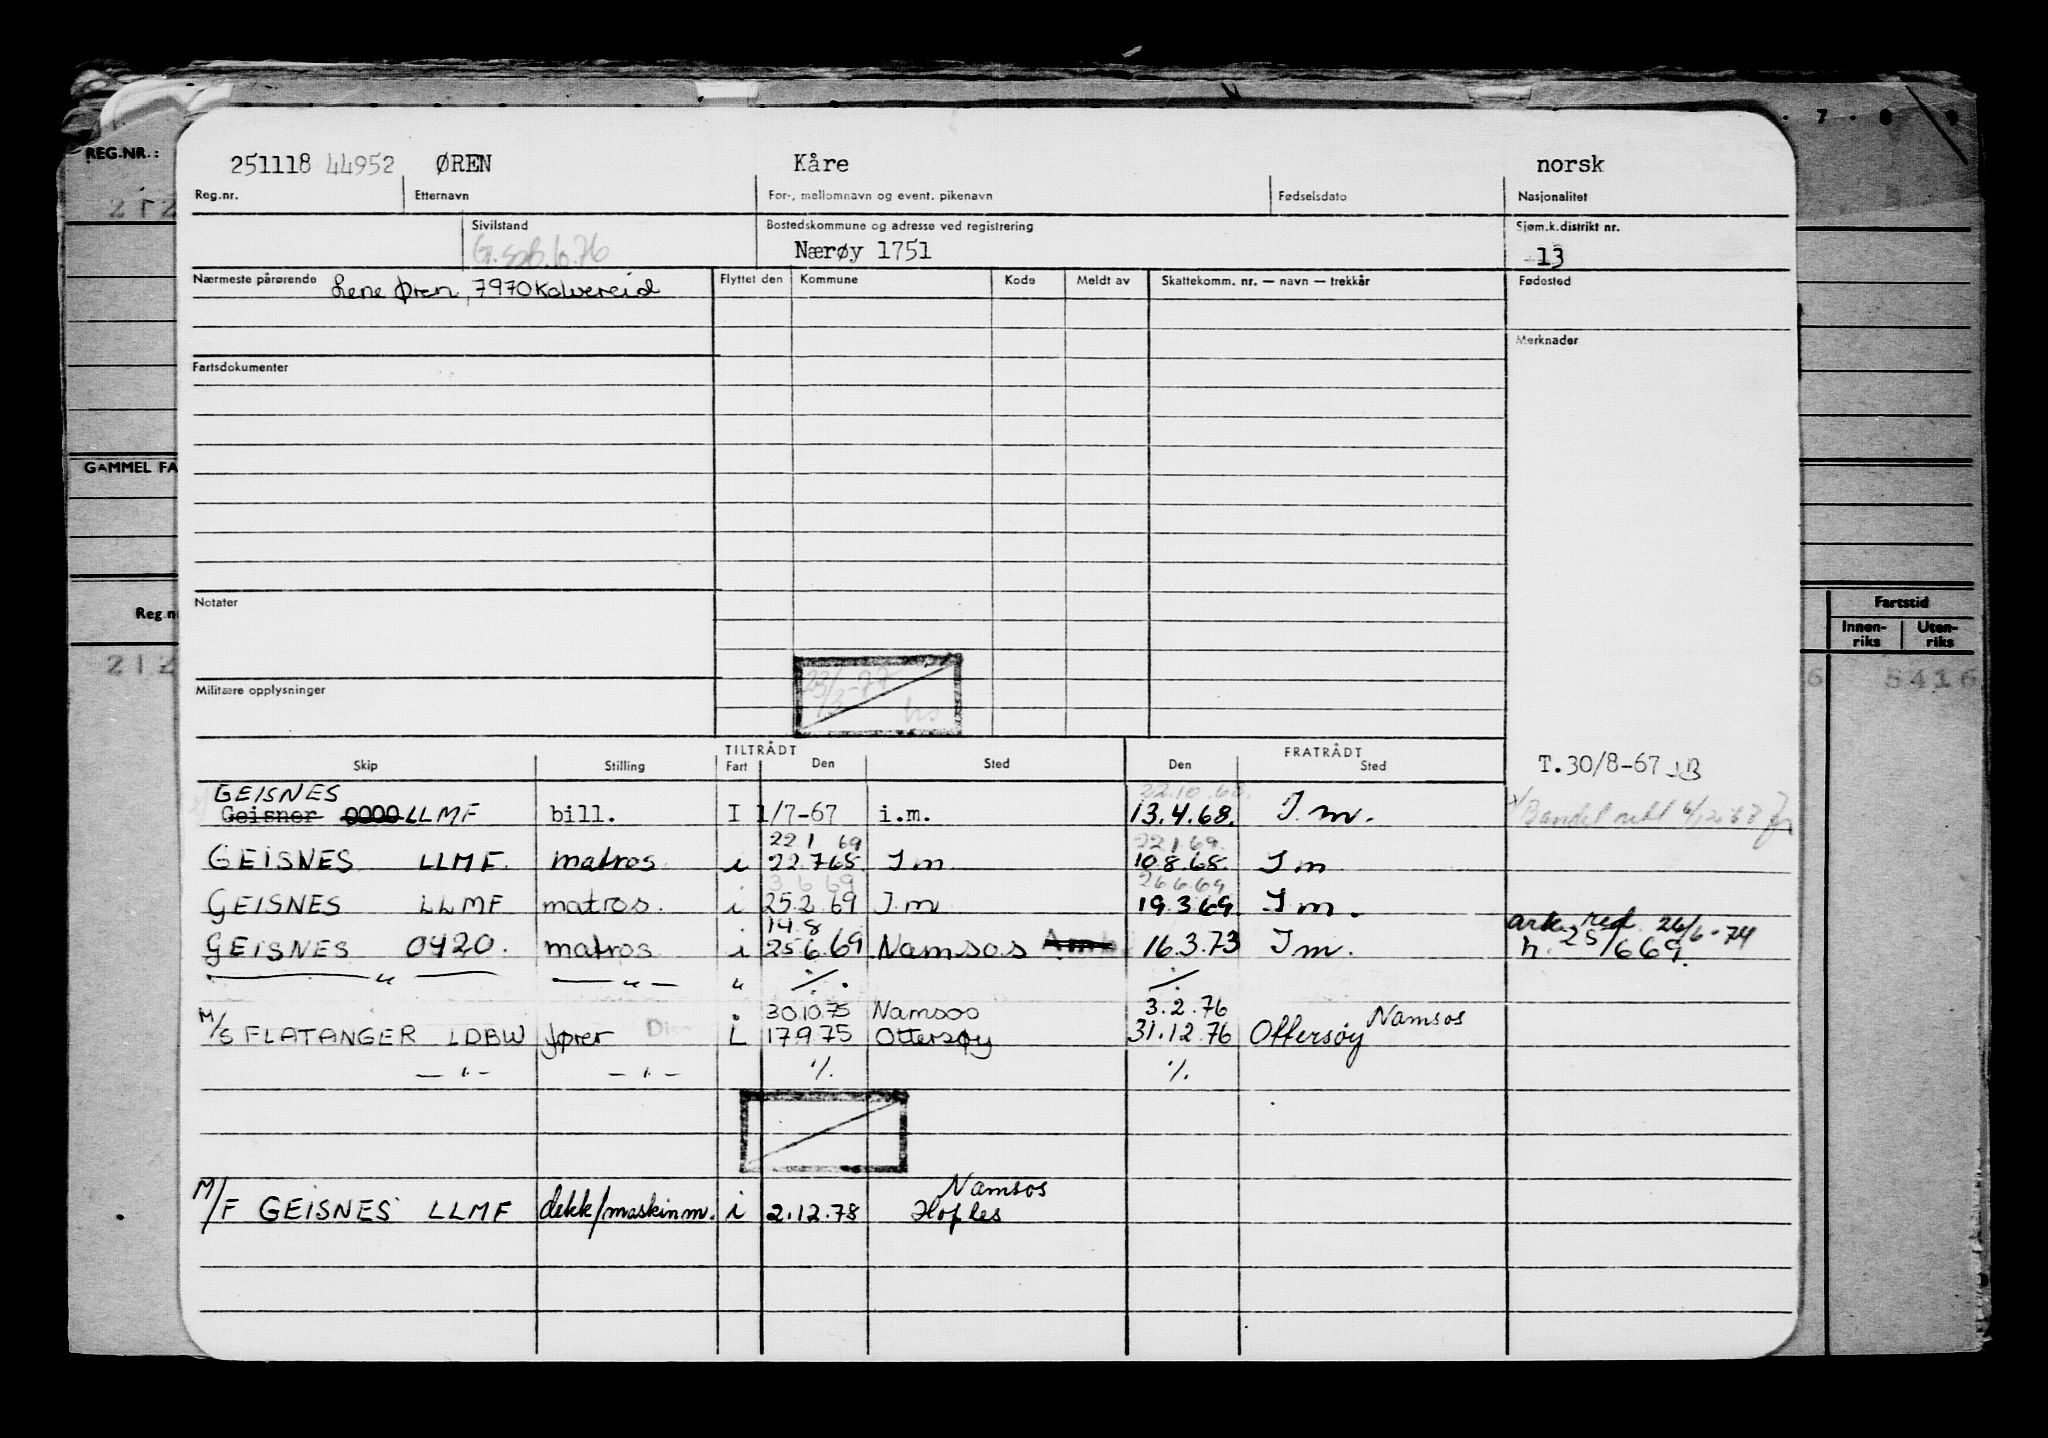 REG.NR.:
7 . 8 9
251118 44952 ØREN Kåre norsk
Reg.nr. Etternavn For-, mellomnavn og event. pikenavn Fødselsdato Nasjonalitet
212
Sivilstand Bostedskommune og adresse ved registrering Sjøm.k.distrikt nr.
Nærøy 1751 13
Nærmeste pårørende Lene Øren, 7970 Kolvereid Flyttet den Kommune Kode Meldt av Skattekomm. nr. — navn — trekkår Fødested
Merknader
Fartsdokumenter
GAMMEL FA
Notater
Reg.n
Fartstid
Innen-riks Uten-riks
212
6 5416
Militære opplysninger
23/3-77
TILTRÅDT FRATRÅDT
Skip Stilling Fart Den Sted Den Sted T.30/8-67 JB
GEISNES 22.10.68.
Geisner 0000 LLMF bill. I 1/7-67 i.m. 13.4.68. I m.
22 1 69 22.1.69.
GEISNES LLMF. matros i 22.7.68. I m 10.8.68. I m
3 6 69 26.6.69.
GEISNES LLMF matros. i 25.2.69 I m 19.3.69. I m.
14.8 ark. red. 26/6-74
GEISNES 0420. matros i 25.6.69 Namsos 16.3.73 I m. n. 25/669.
— " — — " — " ./. ./.
30.10.75 Namsos 3.2.76 Namsos
M/S FLATANGER LDBW fører L 17.9.75 Ottersøy 31.12.76 Ottersøy
— " — — " — ./. ./.
Namsos
M/F GEISNES LLMF dekk/maskinm. i 2.12.78 Hofles